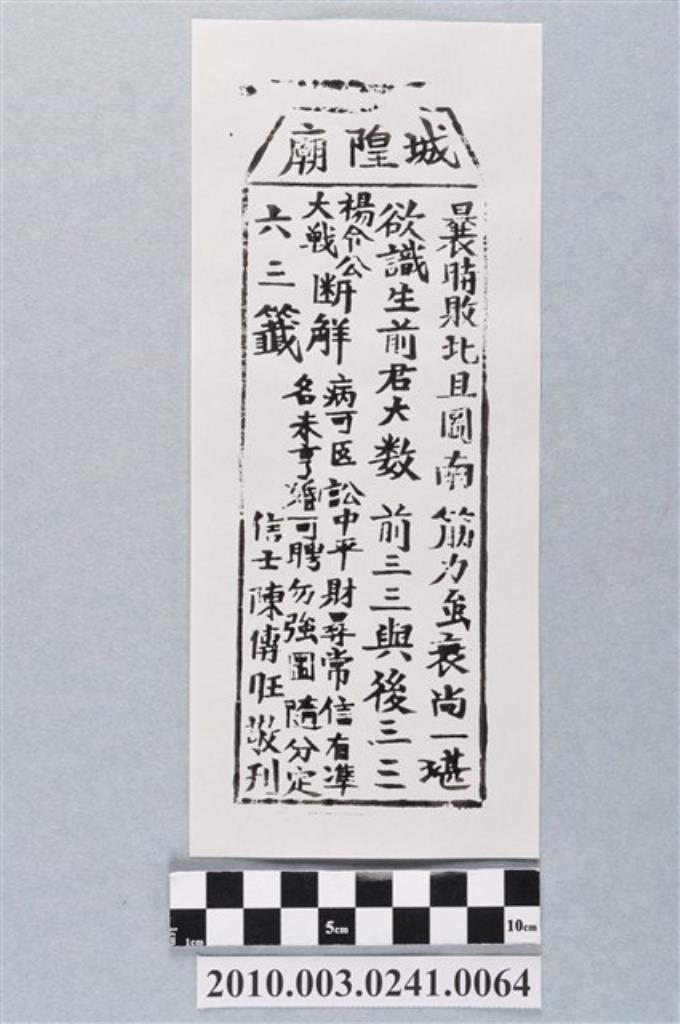 城隍廟
曩時敗北且圖南 筋力虽衰尚一堪
欲識生前君大数 前三三與後三三
楊令公
大戦
断解
病可医訟中平財尋常信有準
名未亨婚可聘勿強圖隨分定
六三籤
信士陳傳旺敬刊
1cm 5cm 10cm
2010.003.0241.0064